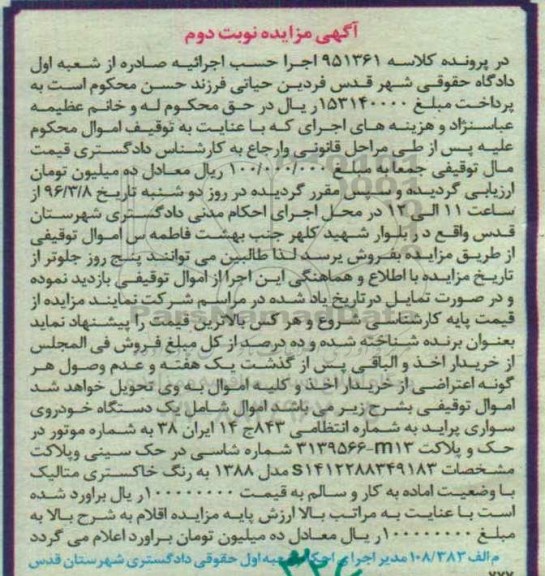 آگهی مزایده نوبت دوم
در پرونده کلاسه ۹۵۱۳۶۱ اجرا حسب اجرائیه صادره از شعبه اول
دادگاه حقوقی شهر قدس فردین حیاتی فرزند حسن محکوم است به
پرداخت مبلغ ۱۵۳۱۴۰۰۰۰ر یال در حق محکوم له و خانم عظیمه
عباسنژاد و هزینه های اجرای که با عنایت به توقیف اموال محکوم
علیه پس از طی مراحل قانونی وارجاع به کارشناس دادگستری قیمت
مال توقیفی جمعا به مبلغ ۱۰۰/۰۰۰/۰۰۰ ریال معادل ده میلیون تومان
ارزیابی گردیده و سپس مقرر گردیده در روز دو شنبه تاریخ ۹۶/۳/۸ از
ساعت ۱۱ الی ۱۲ در محل اجرای احکام مدنی دادگستری شهرستان
قدس واقع در بلوار شهید کلهر جنب بهشت فاطمه س اموال توقیفی
از طریق مزایده بفروش برسد لذا طالبین می توانند پنج روز جلوتر از
تاریخ مزایده با اطلاع و هماهنگی این اجرا از اموال توقیفی بازدید نموده
و در صورت تمایل در تاریخ یاد شده در مراسم شرکت نمایند مزایده از
قیمت پایه کارشناسی شروع و هر کس بالاترین قیمت را پیشنهاد نماید
بعنوان برنده شناخته شده و ده درصد از کل مبلغ فروش فی المجلس
از خریدار اخذ و الباقی پس از گذشت یک هفته و عدم وصول هر
گونه اعتراضی از خریدار اخذ و کلیه اموال به وی تحویل خواهد شد
اموال توقیفی بشرح زیر می باشد اموال شامل یک دستگاه خودروی
سواری پراید به شماره انتظامی ۸۴۳ج ۱۴ ایران ۳۸ به شماره موتور در
حک و پلاکت m۱۳-۳۱۳۹۵۶۶ شماره شاسی در حک سینی وپلاکت
مشخصات S۱۴۱۲۲۸۸۳۴۹۱۸۳ مدل ۱۳۸۸ به رنگ خاکستری متالیک
با وضعیت اماده به کار و سالم به قیمت ۱۰۰۰۰۰۰۰۰ر یال براورد شده
است با عنایت به مراتب بالا ارزش پایه مزایده اقلام به شرح بالا به
مبلغ ۱۰۰۰۰۰۰۰۰ر یال معادل ده میلیون تومان براورد اعلام می گردد
م الف ۱۰۸/۳۸۳ مدیر اجرای احکام شعبه اول حقوقی دادگستری شهرستان قدس
ParsNamadData